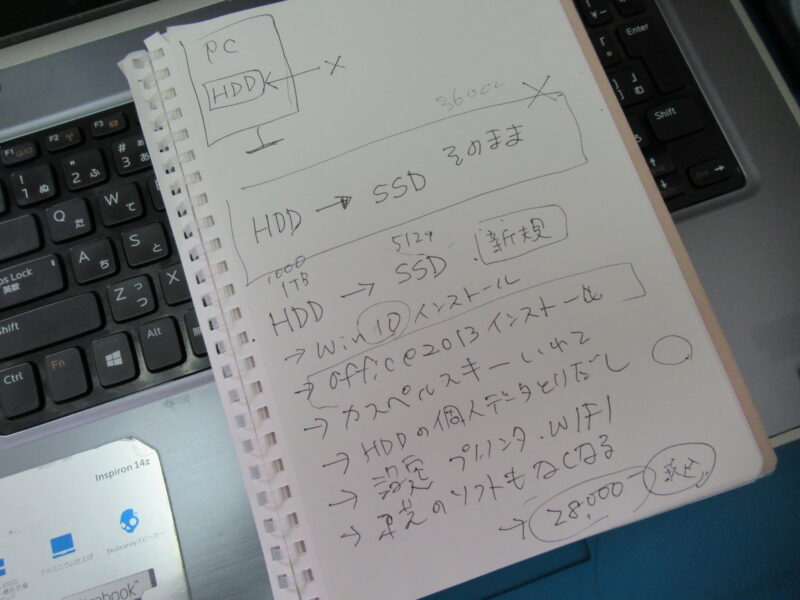 PC
HDD
×
36000
×
HDD → SSD そのまま
1000
1TB
512g
HDD → SSD . 新規
→ Win 10 インストール
→ office2013 インストール
→ カスペルスキー いれて
→ HDDの個人データとりだし
→ 設定 プリンタ . WIFI
→ のソフトもなくなる
→ 28,000- 税込
F1
F2
F3
# 3 あ
! 1 ぬ
" 2 ふ
Q た
W て
A ち
S と
Caps Lock
英数
Z つ っ
X
Shift
Ctrl
Fn
Alt
Enter
Shift
End
Inspiron 14z
アルミニウム仕上げ
SkullCandyスピーカー